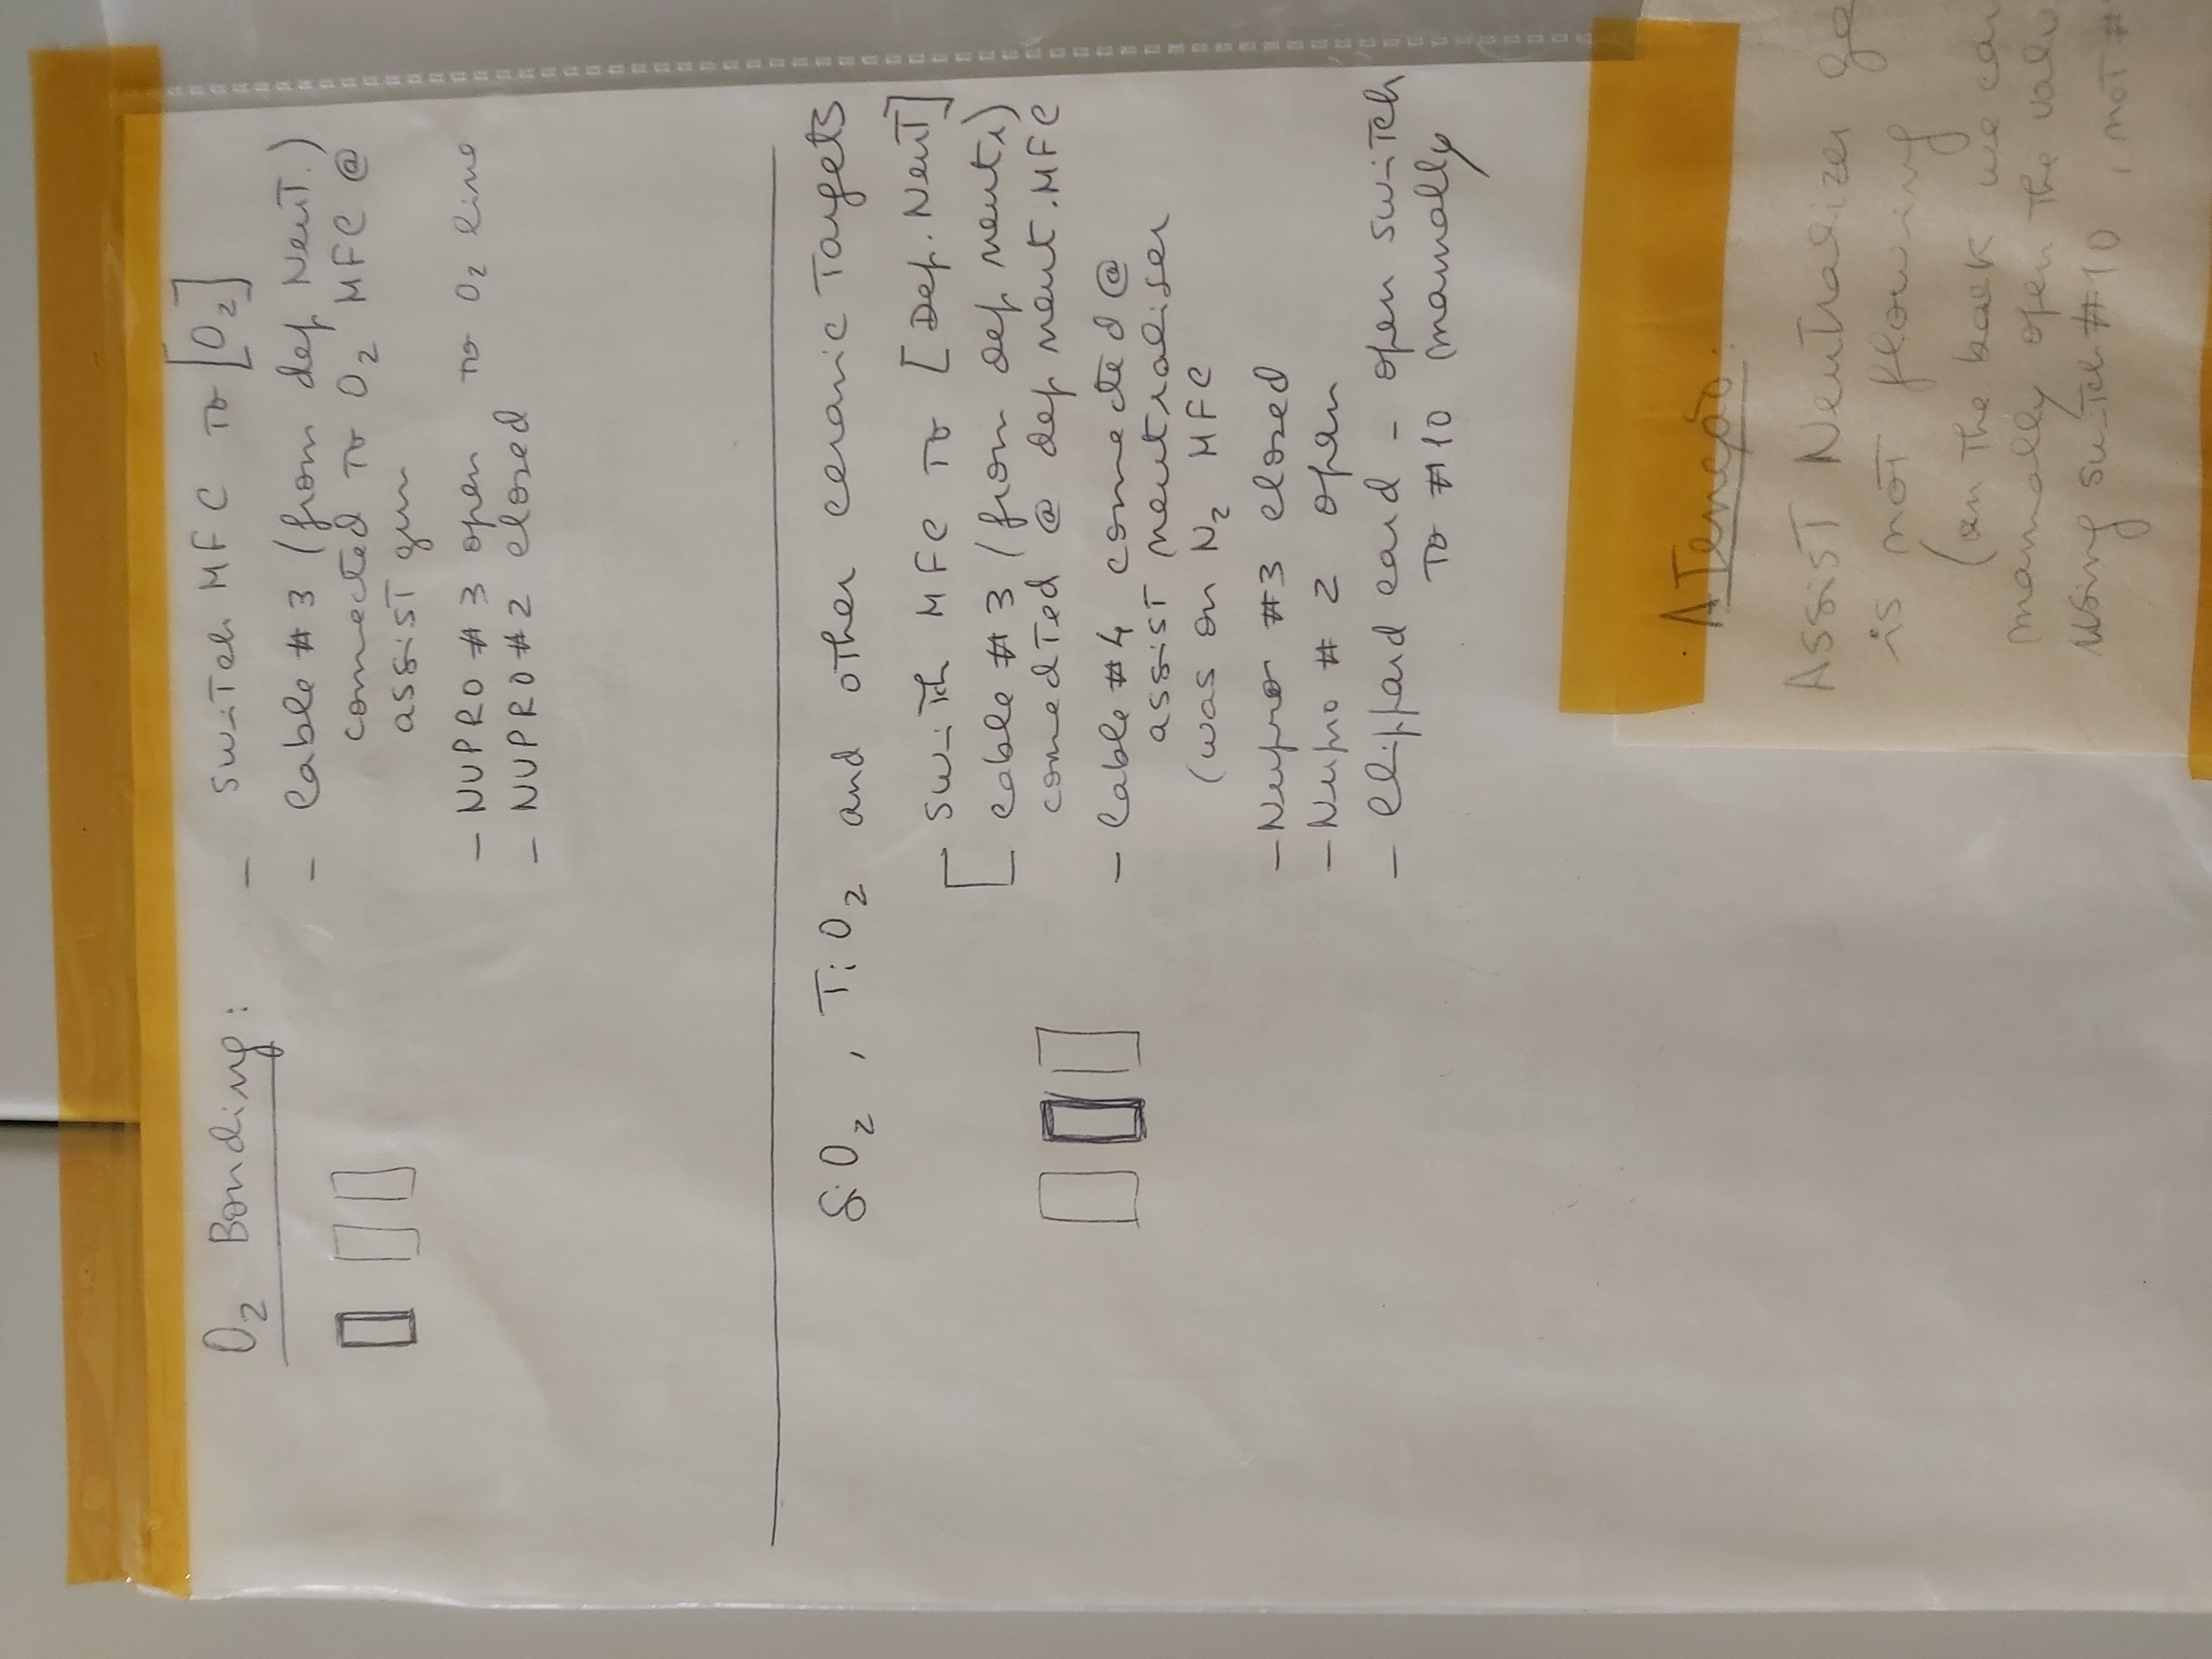 O₂ Bonding:
- switch MFC to [O₂]
- Cable #3 (from dep Neut.)
connected to O₂ MFC @
assist gun
- NUPRO #3 open to O₂ line
- NUPRO #2 closed
SiO₂, TiO₂ and other ceramic Targets
switch MFC to [Dep. Neut]
cable #3 (from dep neutr)
connected @ dep neut. MFC
- Cable #4 connected @
assist neutraliser
(was on N₂ MFC
- Nupro #3 closed
- Nupro # 2 open
- Clippard card - open switch
to #10 manually
Atenção:
Assist Neutralizer
is not flowing
(on the back we can
manually open the
using switch #10, not #